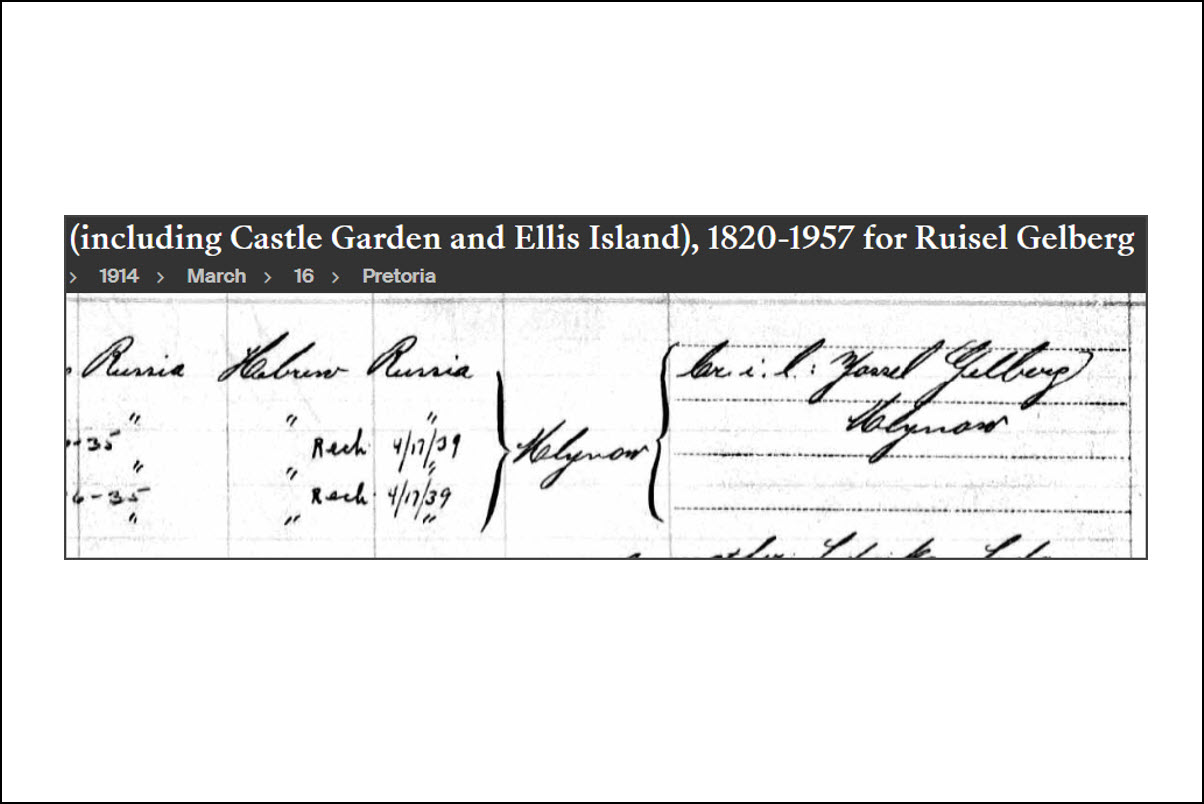 (including Castle Garden and Ellis Island), 1820-1957 for Ruisel Gelberg
> 1914 > March > 16 > Pretoria
Russia Hebrew Russia br. i. l.: Yossel Gelberg
" " " Mlynow
-35 Rech 4/17/39 Mlynow
" " "
6-35 Rech 4/17/39
" " "